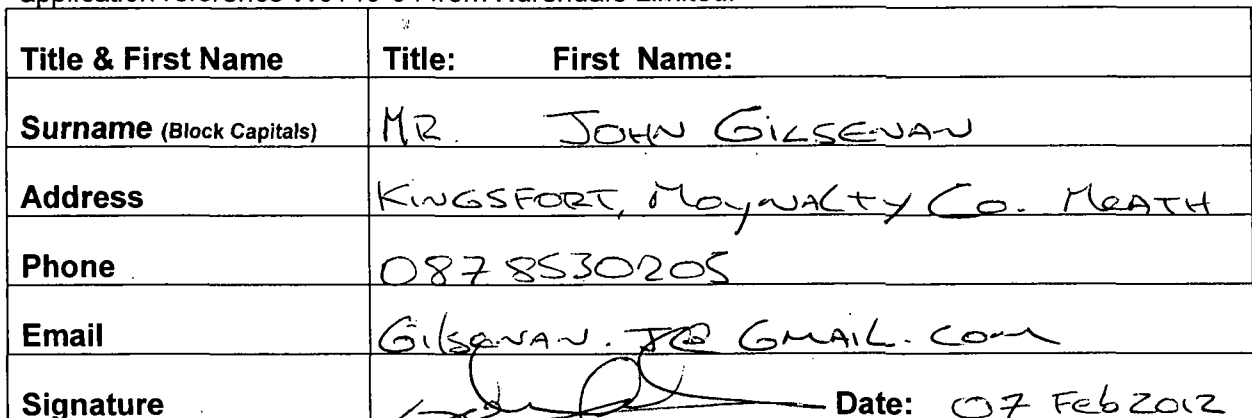 Title & First Name Title: First Name:
Surname (Block Capitals) MR. JOHN GILSENAN
Address KINGSFORT, MOYNALTY CO. MEATH
Phone 087 8530205
Email GILSENAN.J@GMAIL.COM
Signature Date: 07 Feb 2012